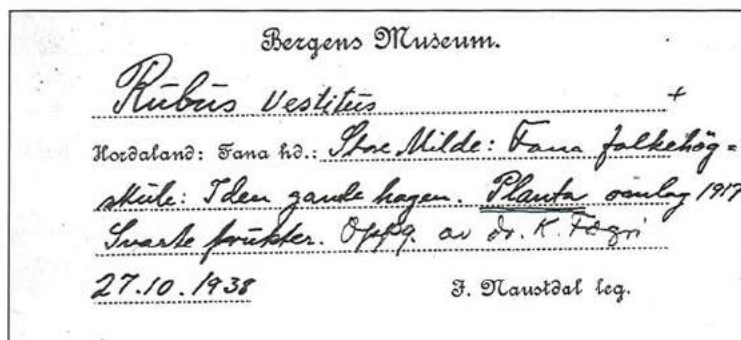 Bergens Museum.
Rubus vestitus +
Hordaland: Fana hd.: Store Milde: Fana folkehög=
skule: I den gamle hagen. Planta omlag 1917
Svarte frukter. Oppg. av dr. K. Fægri
27.10.1938 J. Naustdal leg.